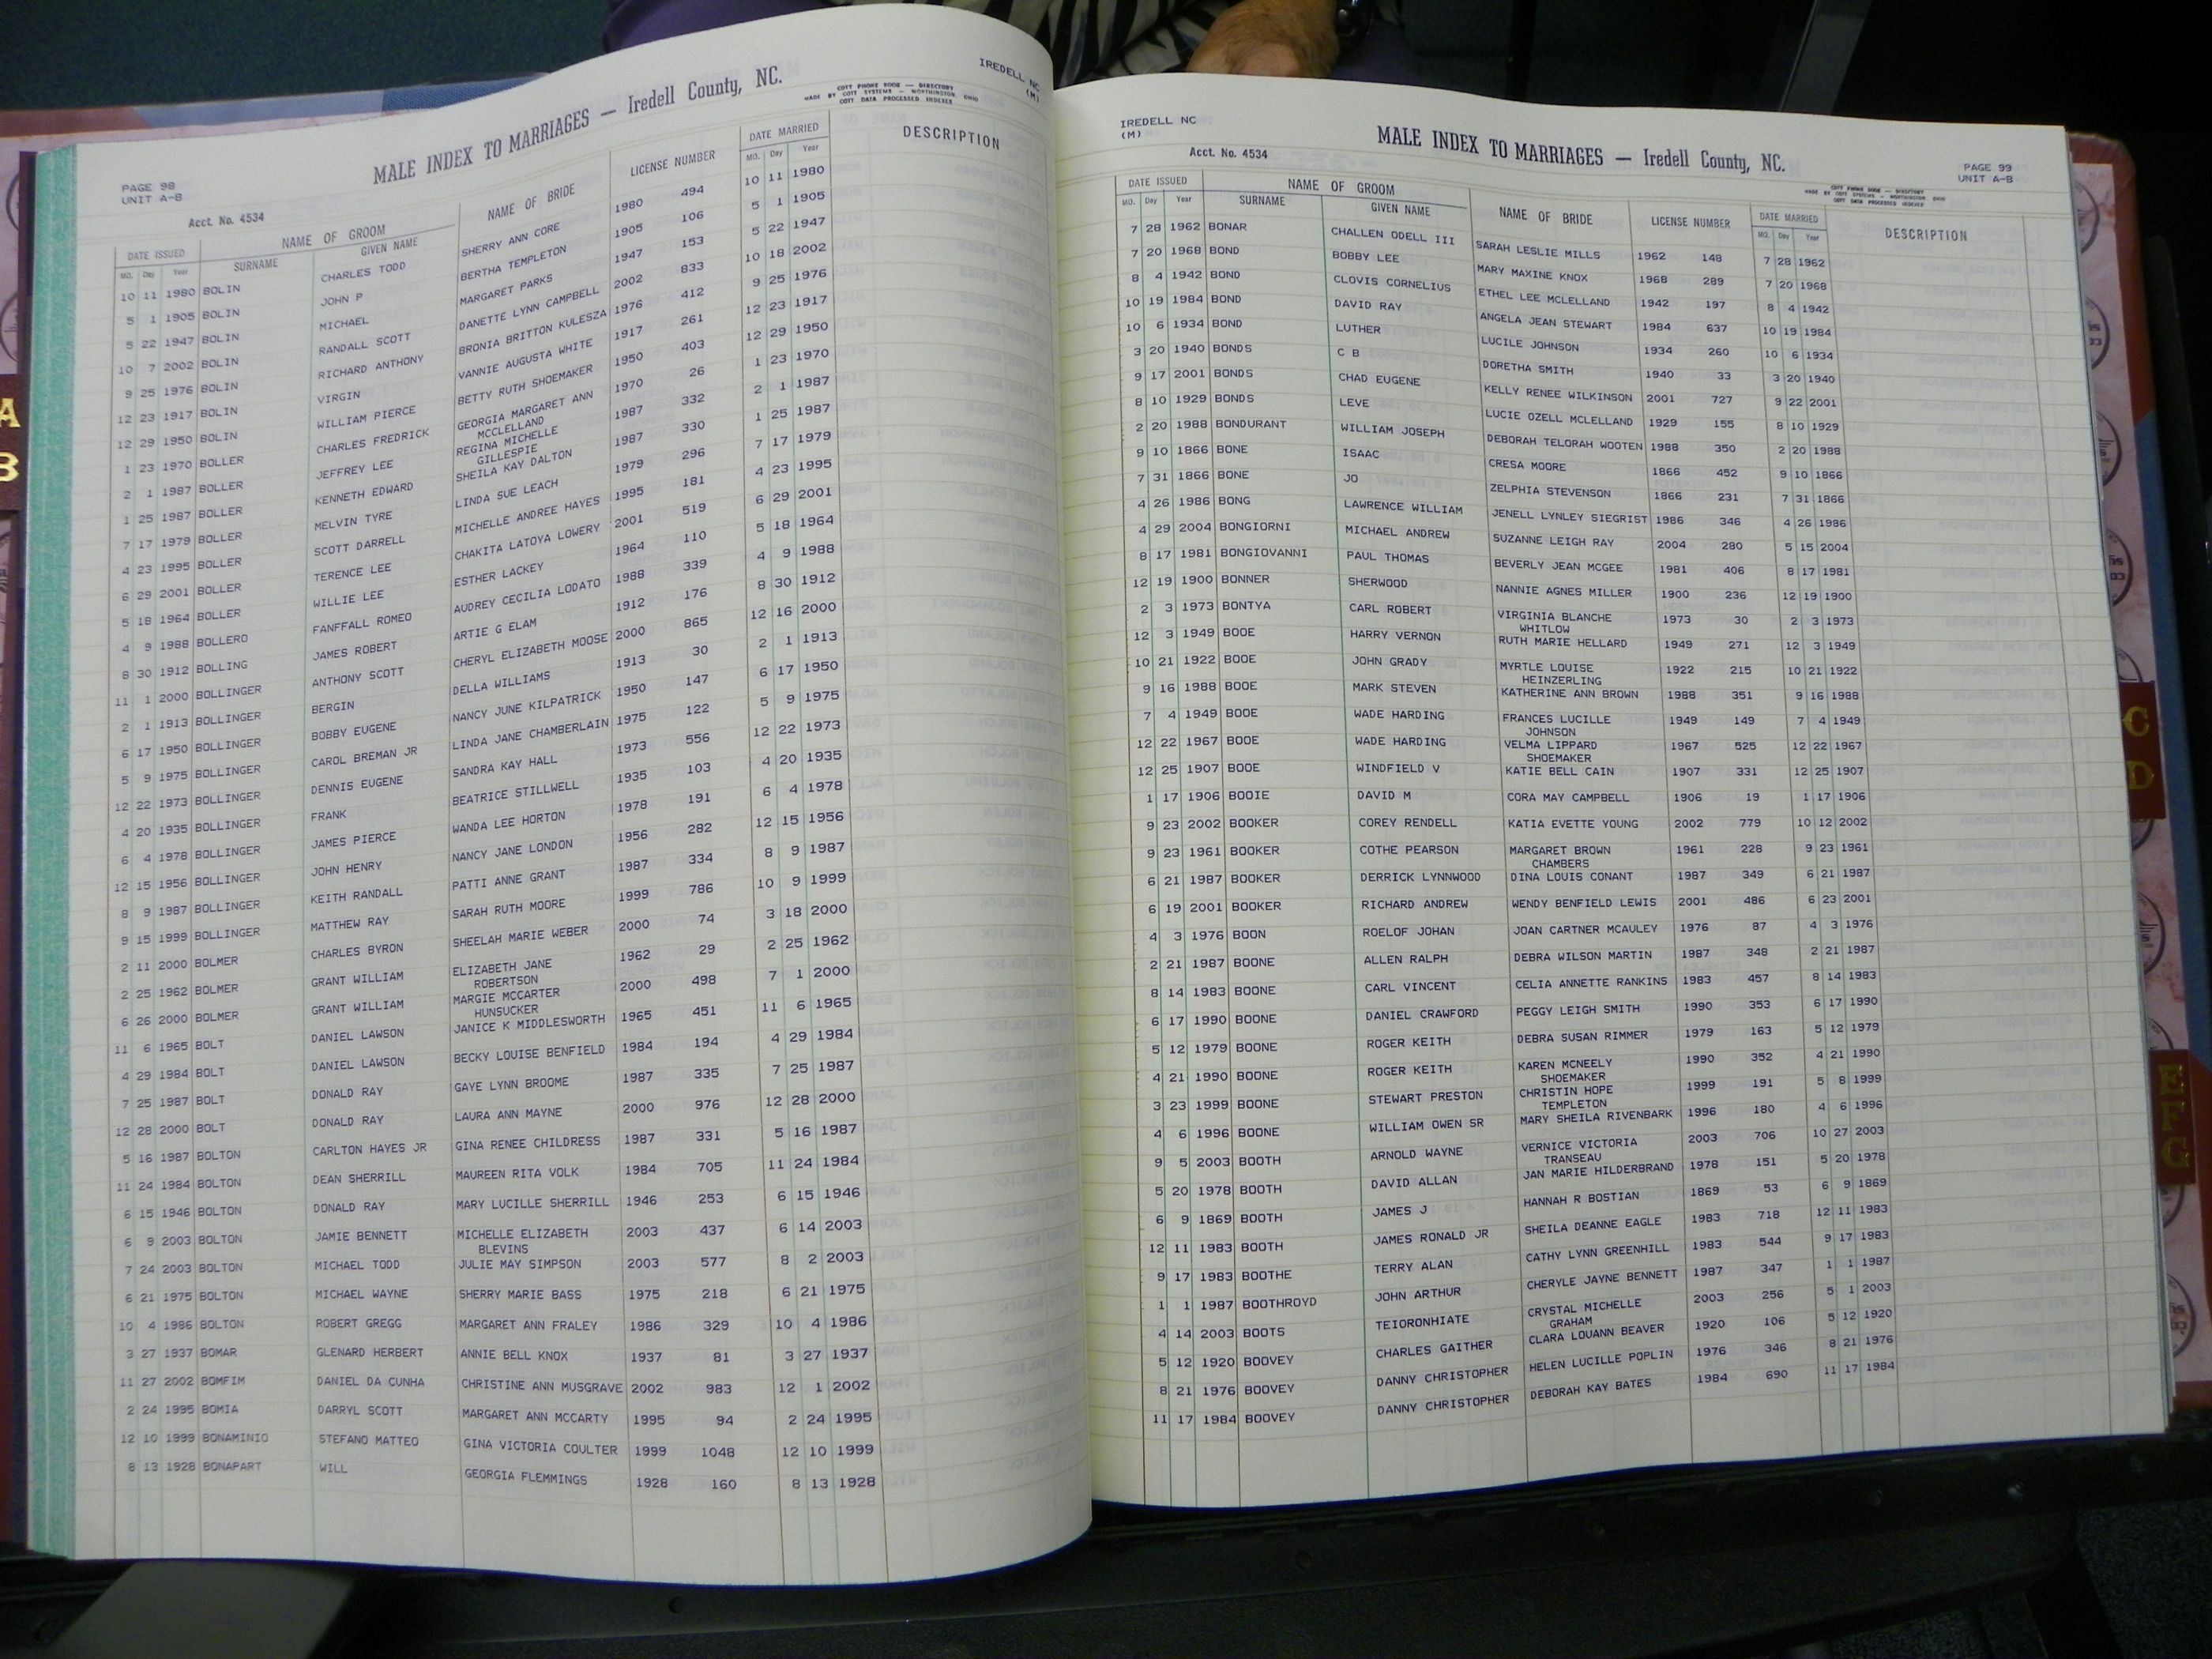 IREDELL NC
(M)
MALE INDEX TO MARRIAGES — Iredell County, NC.
COTT PHONE BOOK — DIRECTORY
MADE BY COTT SYSTEMS — WORTHINGTON, OHIO
COTT DATA PROCESSED INDEXES
PAGE 98
UNIT A-B
Acct. No. 4534
DATE ISSUED NAME OF GROOM NAME OF BRIDE LICENSE NUMBER DATE MARRIED DESCRIPTION
MO. Day Year SURNAME GIVEN NAME MO. Day Year
10 11 1980 BOLIN CHARLES TODD SHERRY ANN CORE 1980 494 10 11 1980
5 1 1905 BOLIN JOHN P BERTHA TEMPLETON 1905 106 5 1 1905
5 22 1947 BOLIN MICHAEL MARGARET PARKS 1947 153 5 22 1947
10 7 2002 BOLIN RANDALL SCOTT DANETTE LYNN CAMPBELL 2002 833 10 18 2002
9 25 1976 BOLIN RICHARD ANTHONY BRONIA BRITTON KULESZA 1976 412 9 25 1976
12 23 1917 BOLIN VIRGIN VANNIE AUGUSTA WHITE 1917 261 12 23 1917
12 29 1950 BOLIN WILLIAM PIERCE BETTY RUTH SHOEMAKER 1950 403 12 29 1950
1 23 1970 BOLLER CHARLES FREDRICK GEORGIA MARGARET ANN 1970 26 1 23 1970
MCCLELLAND
2 1 1987 BOLLER JEFFREY LEE REGINA MICHELLE 1987 332 2 1 1987
GILLESPIE
1 25 1987 BOLLER KENNETH EDWARD SHEILA KAY DALTON 1987 330 1 25 1987
7 17 1979 BOLLER MELVIN TYRE LINDA SUE LEACH 1979 296 7 17 1979
4 23 1995 BOLLER SCOTT DARRELL MICHELLE ANDREE HAYES 1995 181 4 23 1995
6 29 2001 BOLLER TERENCE LEE CHAKITA LATOYA LOWERY 2001 519 6 29 2001
5 18 1964 BOLLER WILLIE LEE ESTHER LACKEY 1964 110 5 18 1964
4 9 1988 BOLLERO FANFFALL ROMEO AUDREY CECILIA LODATO 1988 339 4 9 1988
8 30 1912 BOLLING JAMES ROBERT ARTIE G ELAM 1912 176 8 30 1912
11 1 2000 BOLLINGER ANTHONY SCOTT CHERYL ELIZABETH MOOSE 2000 865 12 16 2000
2 1 1913 BOLLINGER BERGIN DELLA WILLIAMS 1913 30 2 1 1913
6 17 1950 BOLLINGER BOBBY EUGENE NANCY JUNE KILPATRICK 1950 147 6 17 1950
5 9 1975 BOLLINGER CAROL BREMAN JR LINDA JANE CHAMBERLAIN 1975 122 5 9 1975
12 22 1973 BOLLINGER DENNIS EUGENE SANDRA KAY HALL 1973 556 12 22 1973
4 20 1935 BOLLINGER FRANK BEATRICE STILLWELL 1935 103 4 20 1935
6 4 1978 BOLLINGER JAMES PIERCE WANDA LEE HORTON 1978 191 6 4 1978
12 15 1956 BOLLINGER JOHN HENRY NANCY JANE LONDON 1956 282 12 15 1956
8 9 1987 BOLLINGER KEITH RANDALL PATTI ANNE GRANT 1987 334 8 9 1987
9 15 1999 BOLLINGER MATTHEW RAY SARAH RUTH MOORE 1999 786 10 9 1999
2 11 2000 BOLMER CHARLES BYRON SHEELAH MARIE WEBER 2000 74 3 18 2000
2 25 1962 BOLMER GRANT WILLIAM ELIZABETH JANE 1962 29 2 25 1962
ROBERTSON
6 26 2000 BOLMER GRANT WILLIAM MARGIE MCCARTER 2000 498 7 1 2000
HUNSUCKER
11 6 1965 BOLT DANIEL LAWSON JANICE K MIDDLESWORTH 1965 451 11 6 1965
4 29 1984 BOLT DANIEL LAWSON BECKY LOUISE BENFIELD 1984 194 4 29 1984
7 25 1987 BOLT DONALD RAY GAYE LYNN BROOME 1987 335 7 25 1987
12 28 2000 BOLT DONALD RAY LAURA ANN MAYNE 2000 976 12 28 2000
5 16 1987 BOLTON CARLTON HAYES JR GINA RENEE CHILDRESS 1987 331 5 16 1987
11 24 1984 BOLTON DEAN SHERRILL MAUREEN RITA VOLK 1984 705 11 24 1984
6 15 1946 BOLTON DONALD RAY MARY LUCILLE SHERRILL 1946 253 6 15 1946
6 9 2003 BOLTON JAMIE BENNETT MICHELLE ELIZABETH 2003 437 6 14 2003
BLEVINS
7 24 2003 BOLTON MICHAEL TODD JULIE MAY SIMPSON 2003 577 8 2 2003
6 21 1975 BOLTON MICHAEL WAYNE SHERRY MARIE BASS 1975 218 6 21 1975
10 4 1986 BOLTON ROBERT GREGG MARGARET ANN FRALEY 1986 329 10 4 1986
3 27 1937 BOMAR GLENARD HERBERT ANNIE BELL KNOX 1937 81 3 27 1937
11 27 2002 BOMFIM DANIEL DA CUNHA CHRISTINE ANN MUSGRAVE 2002 983 12 1 2002
2 24 1995 BOMIA DARRYL SCOTT MARGARET ANN MCCARTY 1995 94 2 24 1995
12 10 1999 BONAMINIO STEFANO MATTEO GINA VICTORIA COULTER 1999 1048 12 10 1999
8 13 1928 BONAPART WILL GEORGIA FLEMMINGS 1928 160 8 13 1928
IREDELL NC
(M)
MALE INDEX TO MARRIAGES — Iredell County, NC.
Acct. No. 4534
PAGE 99
UNIT A-B
COTT PHONE BOOK — DIRECTORY
MADE BY COTT SYSTEMS — WORTHINGTON, OHIO
COTT DATA PROCESSED INDEXES
DATE ISSUED NAME OF GROOM NAME OF BRIDE LICENSE NUMBER DATE MARRIED DESCRIPTION
MO. Day Year SURNAME GIVEN NAME MO. Day Year
7 28 1962 BONAR CHALLEN ODELL III SARAH LESLIE MILLS 1962 148 7 28 1962
7 20 1968 BOND BOBBY LEE MARY MAXINE KNOX 1968 289 7 20 1968
8 4 1942 BOND CLOVIS CORNELIUS ETHEL LEE MCLELLAND 1942 197 8 4 1942
10 19 1984 BOND DAVID RAY ANGELA JEAN STEWART 1984 637 10 19 1984
10 6 1934 BOND LUTHER LUCILE JOHNSON 1934 260 10 6 1934
3 20 1940 BONDS C B DORETHA SMITH 1940 33 3 20 1940
9 17 2001 BONDS CHAD EUGENE KELLY RENEE WILKINSON 2001 727 9 22 2001
8 10 1929 BONDS LEVE LUCIE OZELL MCLELLAND 1929 155 8 10 1929
2 20 1988 BONDURANT WILLIAM JOSEPH DEBORAH TELORAH WOOTEN 1988 350 2 20 1988
9 10 1866 BONE ISAAC CRESA MOORE 1866 452 9 10 1866
7 31 1866 BONE JO ZELPHIA STEVENSON 1866 231 7 31 1866
4 26 1986 BONG LAWRENCE WILLIAM JENELL LYNLEY SIEGRIST 1986 346 4 26 1986
4 29 2004 BONGIORNI MICHAEL ANDREW SUZANNE LEIGH RAY 2004 280 5 15 2004
8 17 1981 BONGIOVANNI PAUL THOMAS BEVERLY JEAN MCGEE 1981 406 8 17 1981
12 19 1900 BONNER SHERWOOD NANNIE AGNES MILLER 1900 236 12 19 1900
2 3 1973 BONTYA CARL ROBERT VIRGINIA BLANCHE 1973 30 2 3 1973
WHITLOW
12 3 1949 BOOE HARRY VERNON RUTH MARIE HELLARD 1949 271 12 3 1949
10 21 1922 BOOE JOHN GRADY MYRTLE LOUISE 1922 215 10 21 1922
HEINZERLING
9 16 1988 BOOE MARK STEVEN KATHERINE ANN BROWN 1988 351 9 16 1988
7 4 1949 BOOE WADE HARDING FRANCES LUCILLE 1949 149 7 4 1949
JOHNSON
12 22 1967 BOOE WADE HARDING VELMA LIPPARD 1967 525 12 22 1967
SHOEMAKER
12 25 1907 BOOE WINDFIELD V KATIE BELL CAIN 1907 331 12 25 1907
1 17 1906 BOOIE DAVID M CORA MAY CAMPBELL 1906 19 1 17 1906
9 23 2002 BOOKER COREY RENDELL KATIA EVETTE YOUNG 2002 779 10 12 2002
9 23 1961 BOOKER COTHE PEARSON MARGARET BROWN 1961 228 9 23 1961
CHAMBERS
6 21 1987 BOOKER DERRICK LYNNWOOD DINA LOUIS CONANT 1987 349 6 21 1987
6 19 2001 BOOKER RICHARD ANDREW WENDY BENFIELD LEWIS 2001 486 6 23 2001
4 3 1976 BOON ROELOF JOHAN JOAN CARTNER MCAULEY 1976 87 4 3 1976
2 21 1987 BOONE ALLEN RALPH DEBRA WILSON MARTIN 1987 348 2 21 1987
8 14 1983 BOONE CARL VINCENT CELIA ANNETTE RANKINS 1983 457 8 14 1983
6 17 1990 BOONE DANIEL CRAWFORD PEGGY LEIGH SMITH 1990 353 6 17 1990
5 12 1979 BOONE ROGER KEITH DEBRA SUSAN RIMMER 1979 163 5 12 1979
4 21 1990 BOONE ROGER KEITH KAREN MCNEELY 1990 352 4 21 1990
SHOEMAKER
3 23 1999 BOONE STEWART PRESTON CHRISTIN HOPE 1999 191 5 8 1999
TEMPLETON
4 6 1996 BOONE WILLIAM OWEN SR MARY SHEILA RIVENBARK 1996 180 4 6 1996
9 5 2003 BOOTH ARNOLD WAYNE VERNICE VICTORIA 2003 706 10 27 2003
TRANSEAU
5 20 1978 BOOTH DAVID ALLAN JAN MARIE HILDERBRAND 1978 151 5 20 1978
6 9 1869 BOOTH JAMES J HANNAH R BOSTIAN 1869 53 6 9 1869
12 11 1983 BOOTH JAMES RONALD JR SHEILA DEANNE EAGLE 1983 718 12 11 1983
9 17 1983 BOOTHE TERRY ALAN CATHY LYNN GREENHILL 1983 544 9 17 1983
1 1 1987 BOOTHROYD JOHN ARTHUR CHERYLE JAYNE BENNETT 1987 347 1 1 1987
4 14 2003 BOOTS TEIORONHIATE CRYSTAL MICHELLE 2003 256 5 1 2003
GRAHAM
5 12 1920 BOOVEY CHARLES GAITHER CLARA LOUANN BEAVER 1920 106 5 12 1920
8 21 1976 BOOVEY DANNY CHRISTOPHER HELEN LUCILLE POPLIN 1976 346 8 21 1976
11 17 1984 BOOVEY DANNY CHRISTOPHER DEBORAH KAY BATES 1984 690 11 17 1984
A
B
C
D
E
F
G